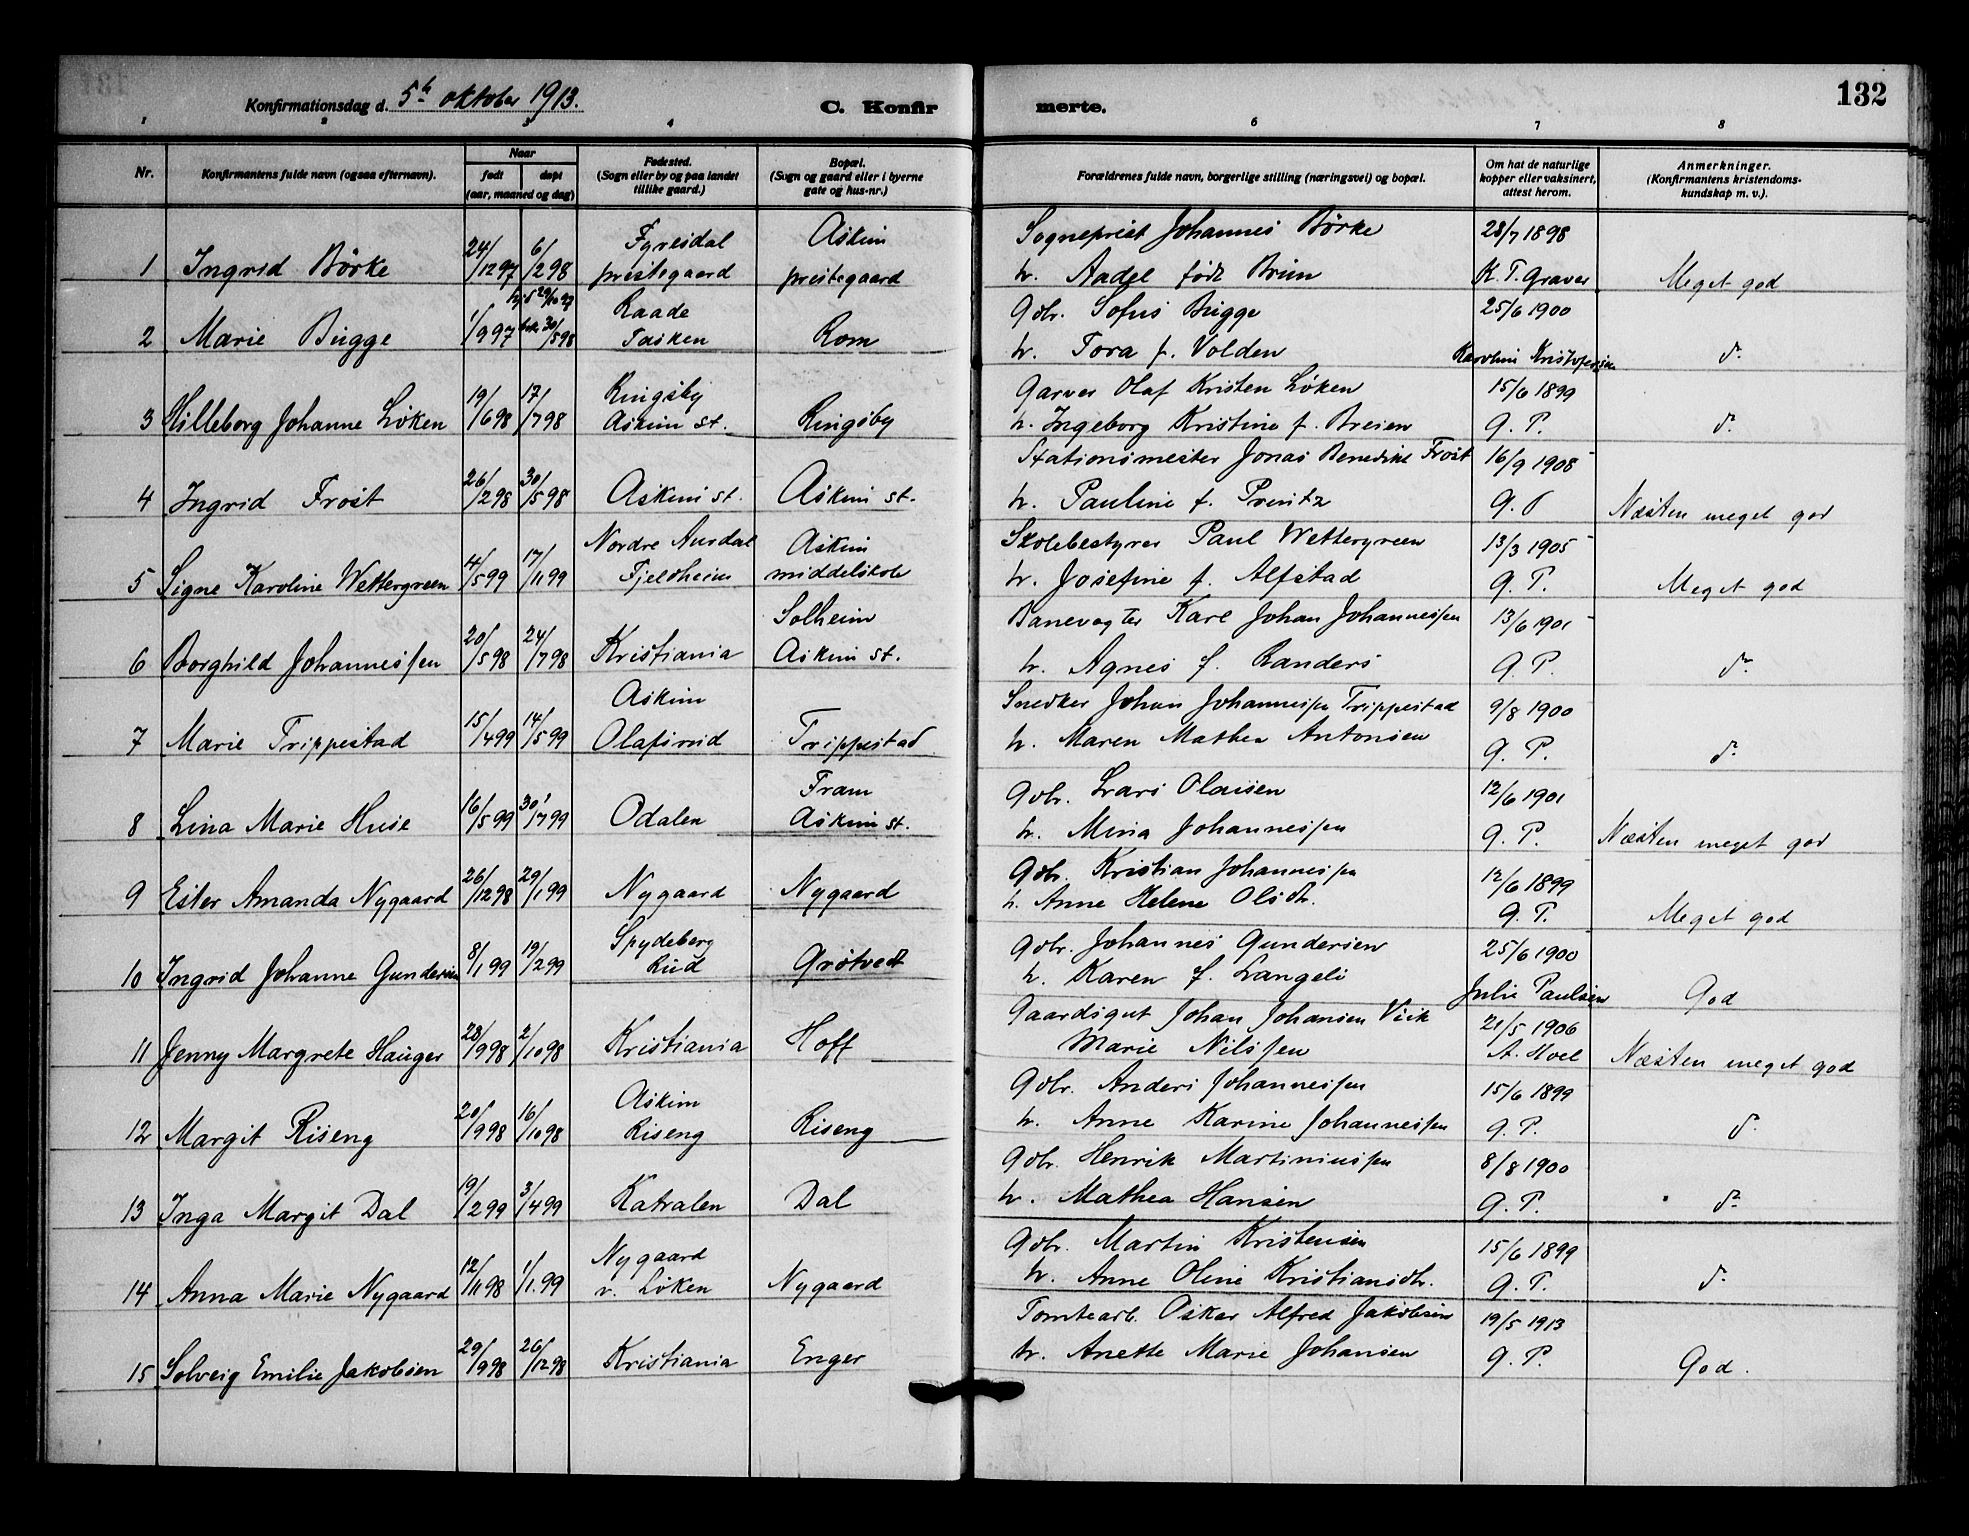 132
Konfirmationsdag d. 5th oktober 1913.
C. Konfir merte.
1 2 3 4 6 7 8
Nr. Konfirmantens fulde navn (ogsaa efternavn). Naar født døpt (aar, maaned og dag) Fødested. (Sogn eller by og paa landet tillike gaard.) Bopæl. (Sogn og gaard eller i byerne gate og hus-nr.) Forældrenes fulde navn, borgerlige stilling (næringsvei) og bopæl. Om hat de naturlige kopper eller vaksinert, attest herom. Anmerkninger. (Konfirmantens kristendoms-kundskap m. v.).
Fyresdal Askim Sogneprest Johannes Börke 28/7 1898
1 Ingrid Börke 24/12 97 6/2 98 prestegaard prestegaard h. Aadel født Brun K. T. Graver Meget god
Raade Gbr. Sofus Bugge 25/6 1900
2 Marie Bugge 1/9 97 30/5 98 Tasken Rom h. Tora f. Volden Karoline Kristofersen do.
Ringsby Garver Olaf Kristen Løken 15/6 1899
3 Hilleborg Johanne Løken 19/6 98 17/7 98 Askim st. Ringsby h. Ingeborg Kristine f. Breien G. P. do.
Stationsmester Jonas Benedikt Frost 16/9 1908
4 Ingrid Frost 26/2 98 30/5 98 Askim st. Askim st. h. Pauline f. Prentz G. P. Næsten meget god
Nordre Aurdal Askim Skolebestyrer Paul Wettergreen 13/3 1905
5 Signe Karoline Wettergreen 14/5 99 17/11 99 Fjeldheim middelskole h. Josefine f. Alfstad G. P. Meget god
Solheim Banevogter Karl Johan Johannessen 13/6 1901
6 Borghild Johannessen 20/5 98 24/7 98 Kristiania Askim st. h. Agnes f. Randers G. P. do.
Askim Snedker Johan Johannessen Trippestad 9/8 1900
7 Marie Trippestad 15/4 99 14/5 99 Olafsrud Trippestad h. Maren Mathea Antonsen G. P. do.
Fram Gbr. Lars Olaisen 12/6 1901
8 Lina Marie Huse 16/5 99 30/7 99 Odalen Askim st. h. Mina Johannessen G. P. Næsten meget god
Gbr. Kristian Johannessen 12/6 1899
9 Ester Amanda Nygaard 26/12 98 29/1 99 Nygaard Nygaard h. Anne Helene Olsdtr. G. P. Meget god
Spydeberg Gbr. Johannes Gundersen 25/6 1900
10 Ingrid Johanne Gundersen 8/1 99 19/2 99 Rud Grøtvedt h. Karen f. Langeli Julie Paulsen God
Gaardsgut Johan Johansen Viik 21/5 1906
11 Jenny Margrete Hauger 28/9 98 2/10 98 Kristiania Hoff Marie Nilssen A. Hoel Næsten meget god
Askim Gbr. Anders Johannessen 15/6 1899
12 Margit Riseng 20/9 98 16/10 98 Riseng Riseng h. Anne Karine Johannessen G. P. do.
Gbr. Henrik Martiniussen 8/8 1900
13 Inga Margit Dal 19/2 99 3/4 99 Katralen Dal h. Mathea Hansen G. P. do.
Nygaard Gbr. Martin Kristensen 15/6 1899
14 Anna Marie Nygaard 12/11 98 1/1 99 v. Løken Nygaard h. Anne Oline Kristiansdtr. G. P. do.
Tomtearb. Oskar Alfred Jakobsen 19/5 1913
15 Solveig Emilie Jakobsen 29/9 98 26/12 98 Kristiania Enger h. Anette Marie Johansen G. P. God.